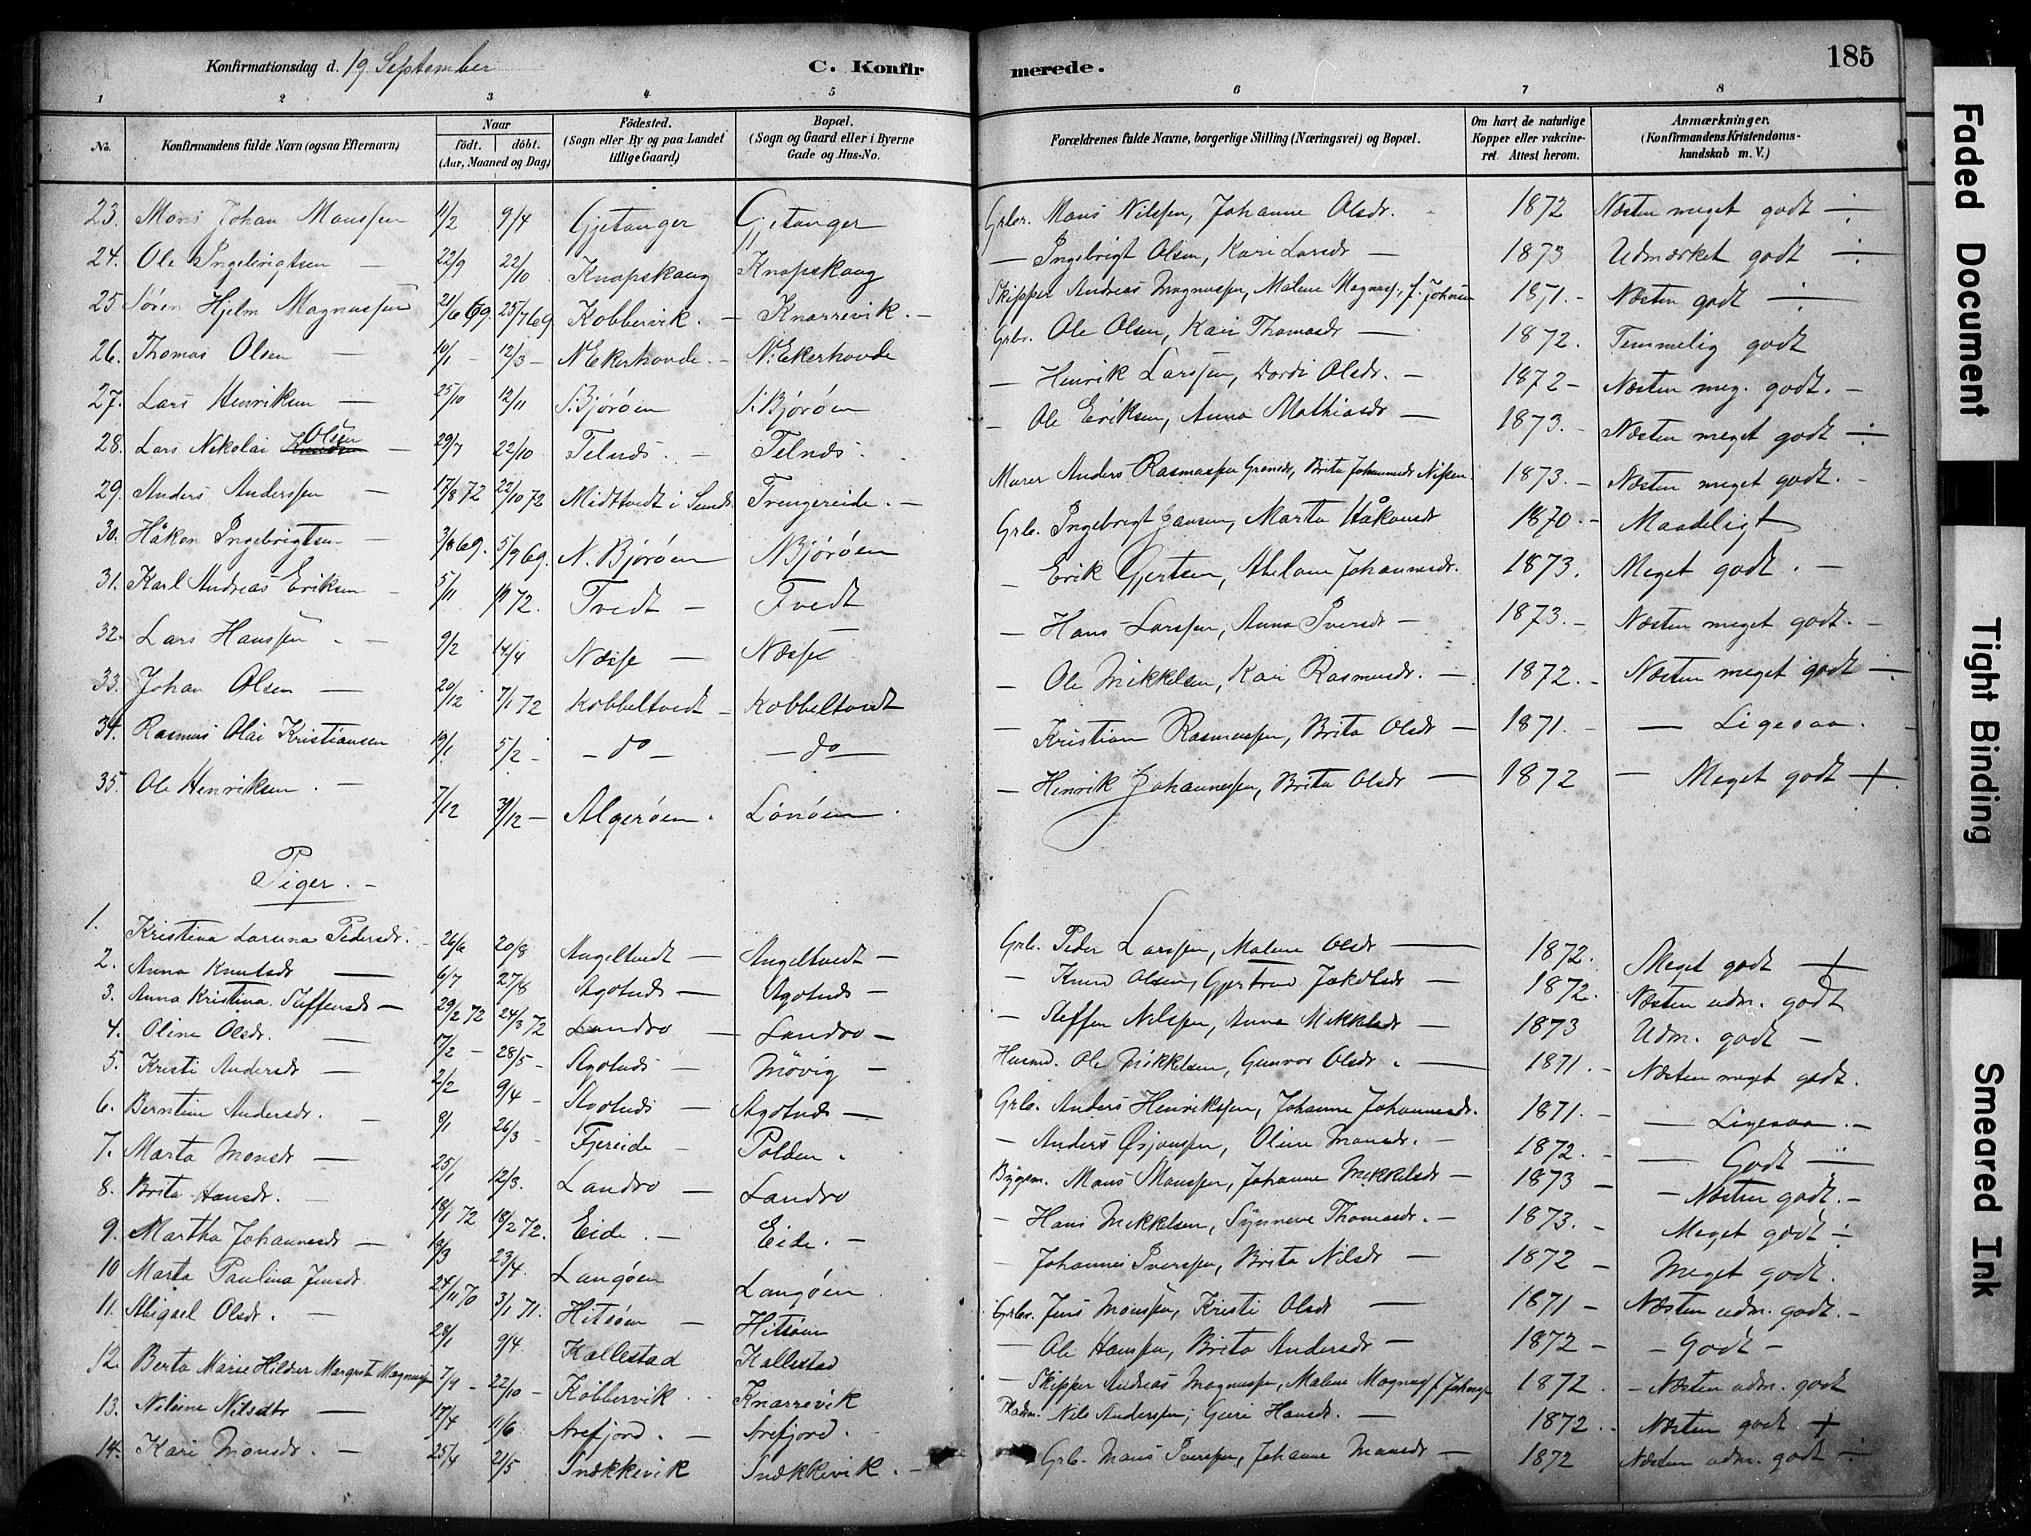 Konfirmationsdag d. 19 September C. Konfirmerede. 185
1 2 3 4 5 6 7 8
No. Konfirmandens fulde Navn (ogsaa Efternavn) Naar født. døbt. (Aar, Maaned og Dag) Fødested. (Sogn eller By og paa Landet tillige Gaard) Bopæl. (Sogn og Gaard eller i Byerne Gade og Hus-No. Forældrenes fulde Navne, borgerlige Stilling (Næringsvei) og Bopæl. Om havt de naturlige Kopper eller vakcineret. Attest herom. Anmærkninger, (Konfirmandens Kristendomskundskab m. V.)
23. Mons Johan Monssen 11/2 9/4 Gjetanger Gjetanger Grbr. Mons Nilssen, Johanne Olsdr. 1872 Næsten meget godt
24. Ole Ingebrigtsen — 22/9 22/10 Knapskaug Knapskaug — Ingebrigt Olsen, Kari Larsdr — 1873 Udmærket godt
25 Søren Hjelm Magnussen 21/6 69. 25/7 69. Kobbervik. — Knarrevik. — Skipper Andreas Magnussen, Malene Magnuss. f. Johnsen 1871. — Næsten godt
26. Thomas Olsen — 10/1 — 12/3 — N. Ekerhovde. — N. Ekerhovde Grbr. Ole Olsen, Kari Thomasdr — 1872. Temmelig godt
27. Lars Henriksen — 25/10 12/11 S. Bjorøen S. Bjorøen — Henrik Larssen, Dordi Olsdr. — 1872 — Næsten meg. godt. —
28. Lars Nikolai Olsen — 29/7 22/10 Telnæs. — Telnæs. — Ole Eriksen, Anna Mathiasdr — 1873. — Næsten meget godt
29. Anders Anderssen — 17/8 72 22/10 72 Midttvedt i Sund Trengereide. — Murer Anders Rasmussen Grønæs, Brita Johannesdr 1873. — Næsten meget godt. —
30. Håkon Ingebrigtsen 3/8 69. 5/9 69. N. Bjorøen N Bjorøen Grb. Ingebrigt Hansen, Marta Håkonsdr 1870. — Maadeligt
31. Karl Andreas Eriksen — 5/11 72. Tvedt — Tvedt — Erik Gjertsen, Abelone Johannesdr. 1873. Meget godt. —
32. Lars Hanssen — 9/2 14/4 Næsse — Næsse — Hans Larssen, Anna Iversdr — 1873. — Næsten meget godt. —
33. Johan Olsen — 20/12 7/1 72 Kobbeltvedt — Kobbeltvedt — Ole Mikkelsen, Kari Rasmusdr. — 1872. — Næsten meget godt
34. Rasmus Olai Kristiansen 19/1 5/2 — — do — — do — Kristian Rasmussen, Brita Olsdr — 1871. — — Ligesaa.
35. Ole Henriksen. — 7/12 31/12 — Algerøen. Lønøen — Henrik Johannessen, Brita Olsdr — 1872 — Meget godt +
Piger. —
1. Kristina Larina Pedersdr. 26/6 20/8 Angeltvedt — Angeltvedt — Grb. Peder Larssen, Malene Olsdr — 1872. Meget godt +
2. Anna Knutsdr — 6/7 27/8 Agotnæs — Agotnæs — — Knud Olsen, Gjertrud Jakobsdr — 1872. Næsten udm. godt
3. Anna Kristina Steffensdr — 29/2 72 24/3 72 Landro — Landro — — Steffen Nilssen, Anna Mikkelsdr — 1873 Udm. godt —
4. Oline Olsdr. — 17/2 — 28/5 — Agotnæs — Møvig — Husmd. Ole Mikkelsen, Gunvor Olsdr. — 1871. — Næsten meget godt.
5. Kristi Andersdr — 2/2 9/4 — Agotnæs — Agotnæs — Grb. Anders Henrikssen, Johanne Johannesdr. 1871. — — Ligesaa. —
6. Berntine Andersdr. — 9/1 26/3 — Fjereide — Polden. — Anders Ørjanssen, Oline Monsdr. — 1872. — Godt —
7. Marta Monsdr — 25/1 12/3. Landro — Landro Bygsm. Mons Monssen, Johanne Mikkelsdr — 1873 — — Næsten godt. —
8. Brita Hansdr. — 18/1 72 18/2 72. Eide. — Eide. — — Hans Mikkelsen, Synneve Thomasdr. — 1873. — Meget godt
9. Martha Johannesdr — 18/3 23/4. Langøen Langøen. Johannes Iverssen, Brita Nilsdr — 1872 — Meget godt.
10 Marta Paulina Jensdr. 24/11 70 3/1 71. Hitsøen — Hitsøen Grbr. Jens Monssen, Kristi Olsdr — 1871 — Næsten udm. godt. —
11. Abigael Olsdr. — 28/1 9/4 Kallestad Kallestad — Ole Hanssen, Brita Andersdr — 1872 — — Godt —
12. Berta Marie Hildur Margrete Magnussen 7/9 — 22/10 — Kobbervik Knarrevik — Skipper Andreas Magnussen, Malene Magnuss. f. Johnsen 1872. — Næsten udm. godt
13. Nilsine Nilsdtr — 17/4 11/6 Arefjord. — Arefjord. Nils Anderssen, Guri Hansdr. — 1872. — Næsten godt +
14. Kari Monsdr. — 25/4 21/5 Snekkevik Snekkevik. — Grb. Mons Iverssen, Johanne Monsdr — 1872 Næsten udm. godt
Faded Document
Tight Binding
Smeared Ink